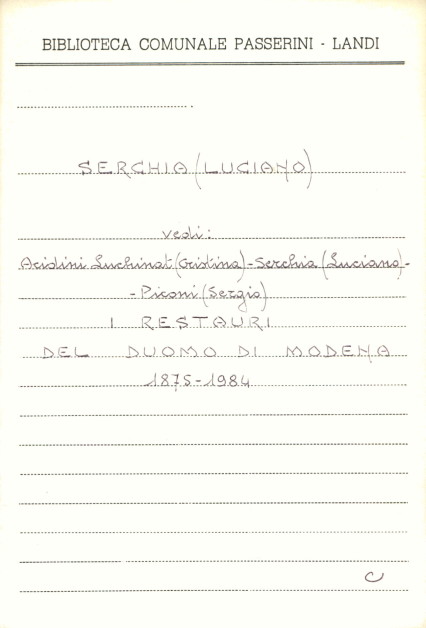 BIBLIOTECA COMUNALE PASSERINI - LANDI
SERCHIA (LUCIANO)
vedi:
Acidini Luchinat (Cristina) - Serchia (Luciano) -
- Piconi (Sergio)
I RESTAURI
DEL DUOMO DI MODENA
1875-1984
C